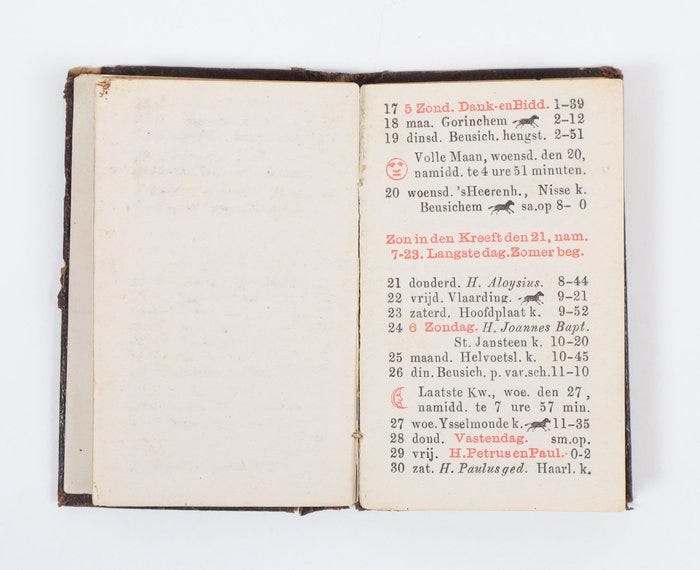 17 5 Zond. Dank-en Bidd. 1-39
18 maa. Gorinchem 2-12
19 dinsd. Beusich. hengst. 2-51
Volle Maan, woensd. den 20,
namidd. te 4 ure 51 minuten.
20 woensd. 'sHeerenh., Nisse k.
Beusichem sa.op 8- 0
Zon in den Kreeft den 21, nam.
7-23. Langste dag. Zomer beg.
21 donderd. H. Aloysius. 8-44
22 vrijd. Vlaarding. 9-21
23 zaterd. Hoofdplaat k. 9-52
24 6 Zondag. H. Joannes Bapt.
St. Jansteen k. 10-20
25 maand. Helvoetsl. k. 10-45
26 din. Beusich. p. var.sch. 11-10
Laatste Kw., woe. den 27,
namidd. te 7 ure 57 min.
27 woe. Ysselmonde k. 11-35
28 dond. Vastendag. sm.op.
29 vrij. H. Petrus en Paul. 0-2
30 zat. H. Paulus ged. Haarl. k.